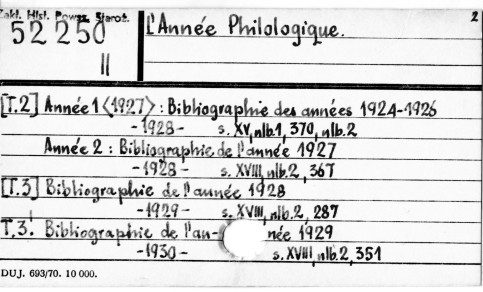 Zakł. Hist. Powsz. Staroż.
2
52 250
II
L'Année Philologique.
[T.2] Année 1 <1927> : Bibliographie des années 1924-1926
- 1928 - s. XV, nlb.1, 370, nlb.2
Année 2 : Bibliographie de l'année 1927
- 1928 - s. XVIII, nlb.2, 367
[T.3] Bibliographie de l'année 1928
- 1929 - s. XVIII, nlb.2, 287
T.3. Bibliographie de l'an- née 1929
- 1930 - s. XVIII, nlb.2, 351
DUJ. 693/70. 10 000.